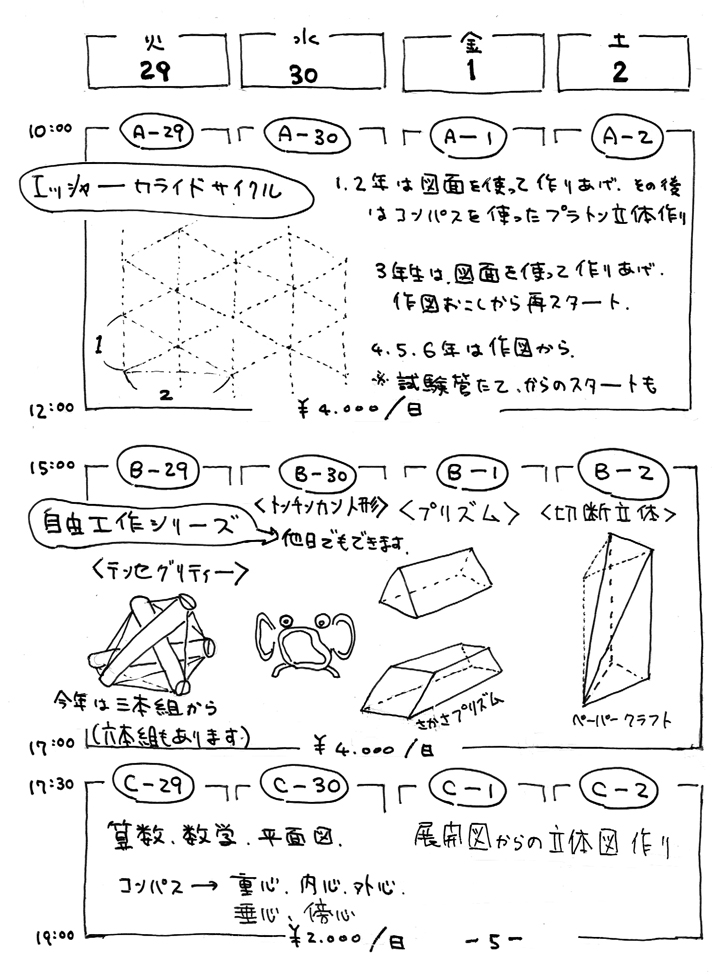 火 水 金 土
29 30 1 2
10:00 A-29 A-30 A-1 A-2
エッシャーカライドサイクル
1.2年は図面を使って作りあげ、その後
はコンパスを使ったプラトン立体作り
3年生は、図面を使って作りあげ、
作図おこしから再スタート.
4.5.6年は作図から.
※試験管たて、からのスタートも
1
2
12:00 ¥4.000/日
15:00 B-29 B-30 B-1 B-2
自由工作シリーズ
<トンチンカン人形> <プリズム> <切断立体>
他日でもできます.
<テンセグリティー>
今年は三本組から
(六本組もあります)
さかさプリズム
ペーパークラフト
17:00 ¥4.000/日
17:30 C-29 C-30 C-1 C-2
算数、数学、平面図. 展開図からの立体図作り
コンパス→重心、内心、外心.
垂心、傍心
19:00 ¥2.000/日 -5-